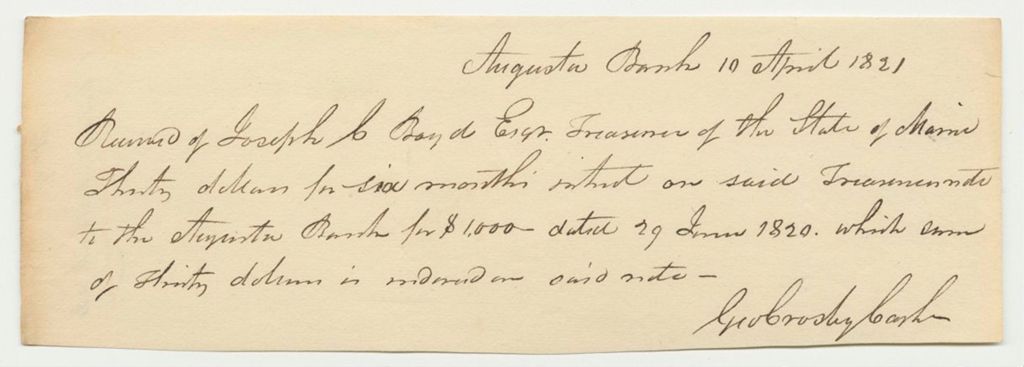 Augusta Bank 10 April 1821
Received of Joseph C Boyd Esqr. Treasurer of the State of Maine
Thirty dollars for six months intrest on said Treasurers note
to the Augusta Bank for $1,000 - dated 29 June 1820. which sum
of Thirty dollars is endorsed on said note -
Geo Crosby Cash